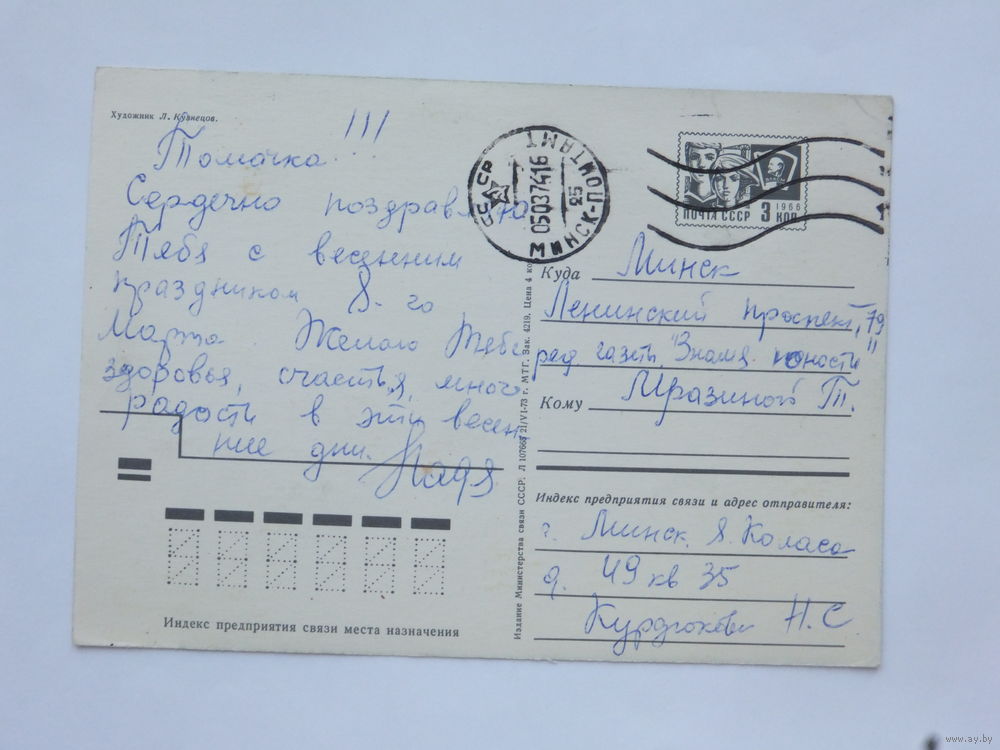 Художник Л. Кузнецов.
Томочка!!!
Сердечно поздравляю
Тебя с весенним
праздником 8-го
Марта. Желаю Тебе
здоровья, счастья, много
радости в эти весен
ние дни. Надя
СССР
050374 16
25
МИНСК-ПОЧТАМТ
ВЛКСМ
1966
ПОЧТА СССР 3 КОП
Куда Минск
Ленинский проспект, 79
ред. газеты "Знамя юности"
Кому Мразиной Т.
Индекс предприятия связи и адрес отправителя:
г. Минск, Я. Коласа
д. 49 кв 35
Н. С
Индекс предприятия связи места назначения
Издание Министерства связи СССР. Л 107668 21/VI-73 г. МТГ. Зак. 4219. Цена 4 коп
www.ay.by